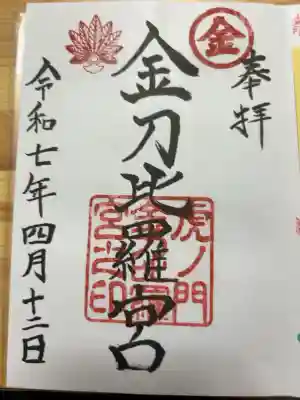 奉拝
金
金刀比羅宮
虎ノ門
金刀比羅
宮之印
令和七年四月十二日